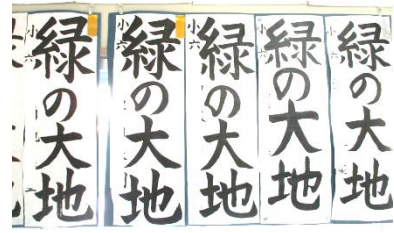 緑の大地
小六
緑の大地
小六
緑の大地
小六
緑の大地
小六
緑の大地
小六